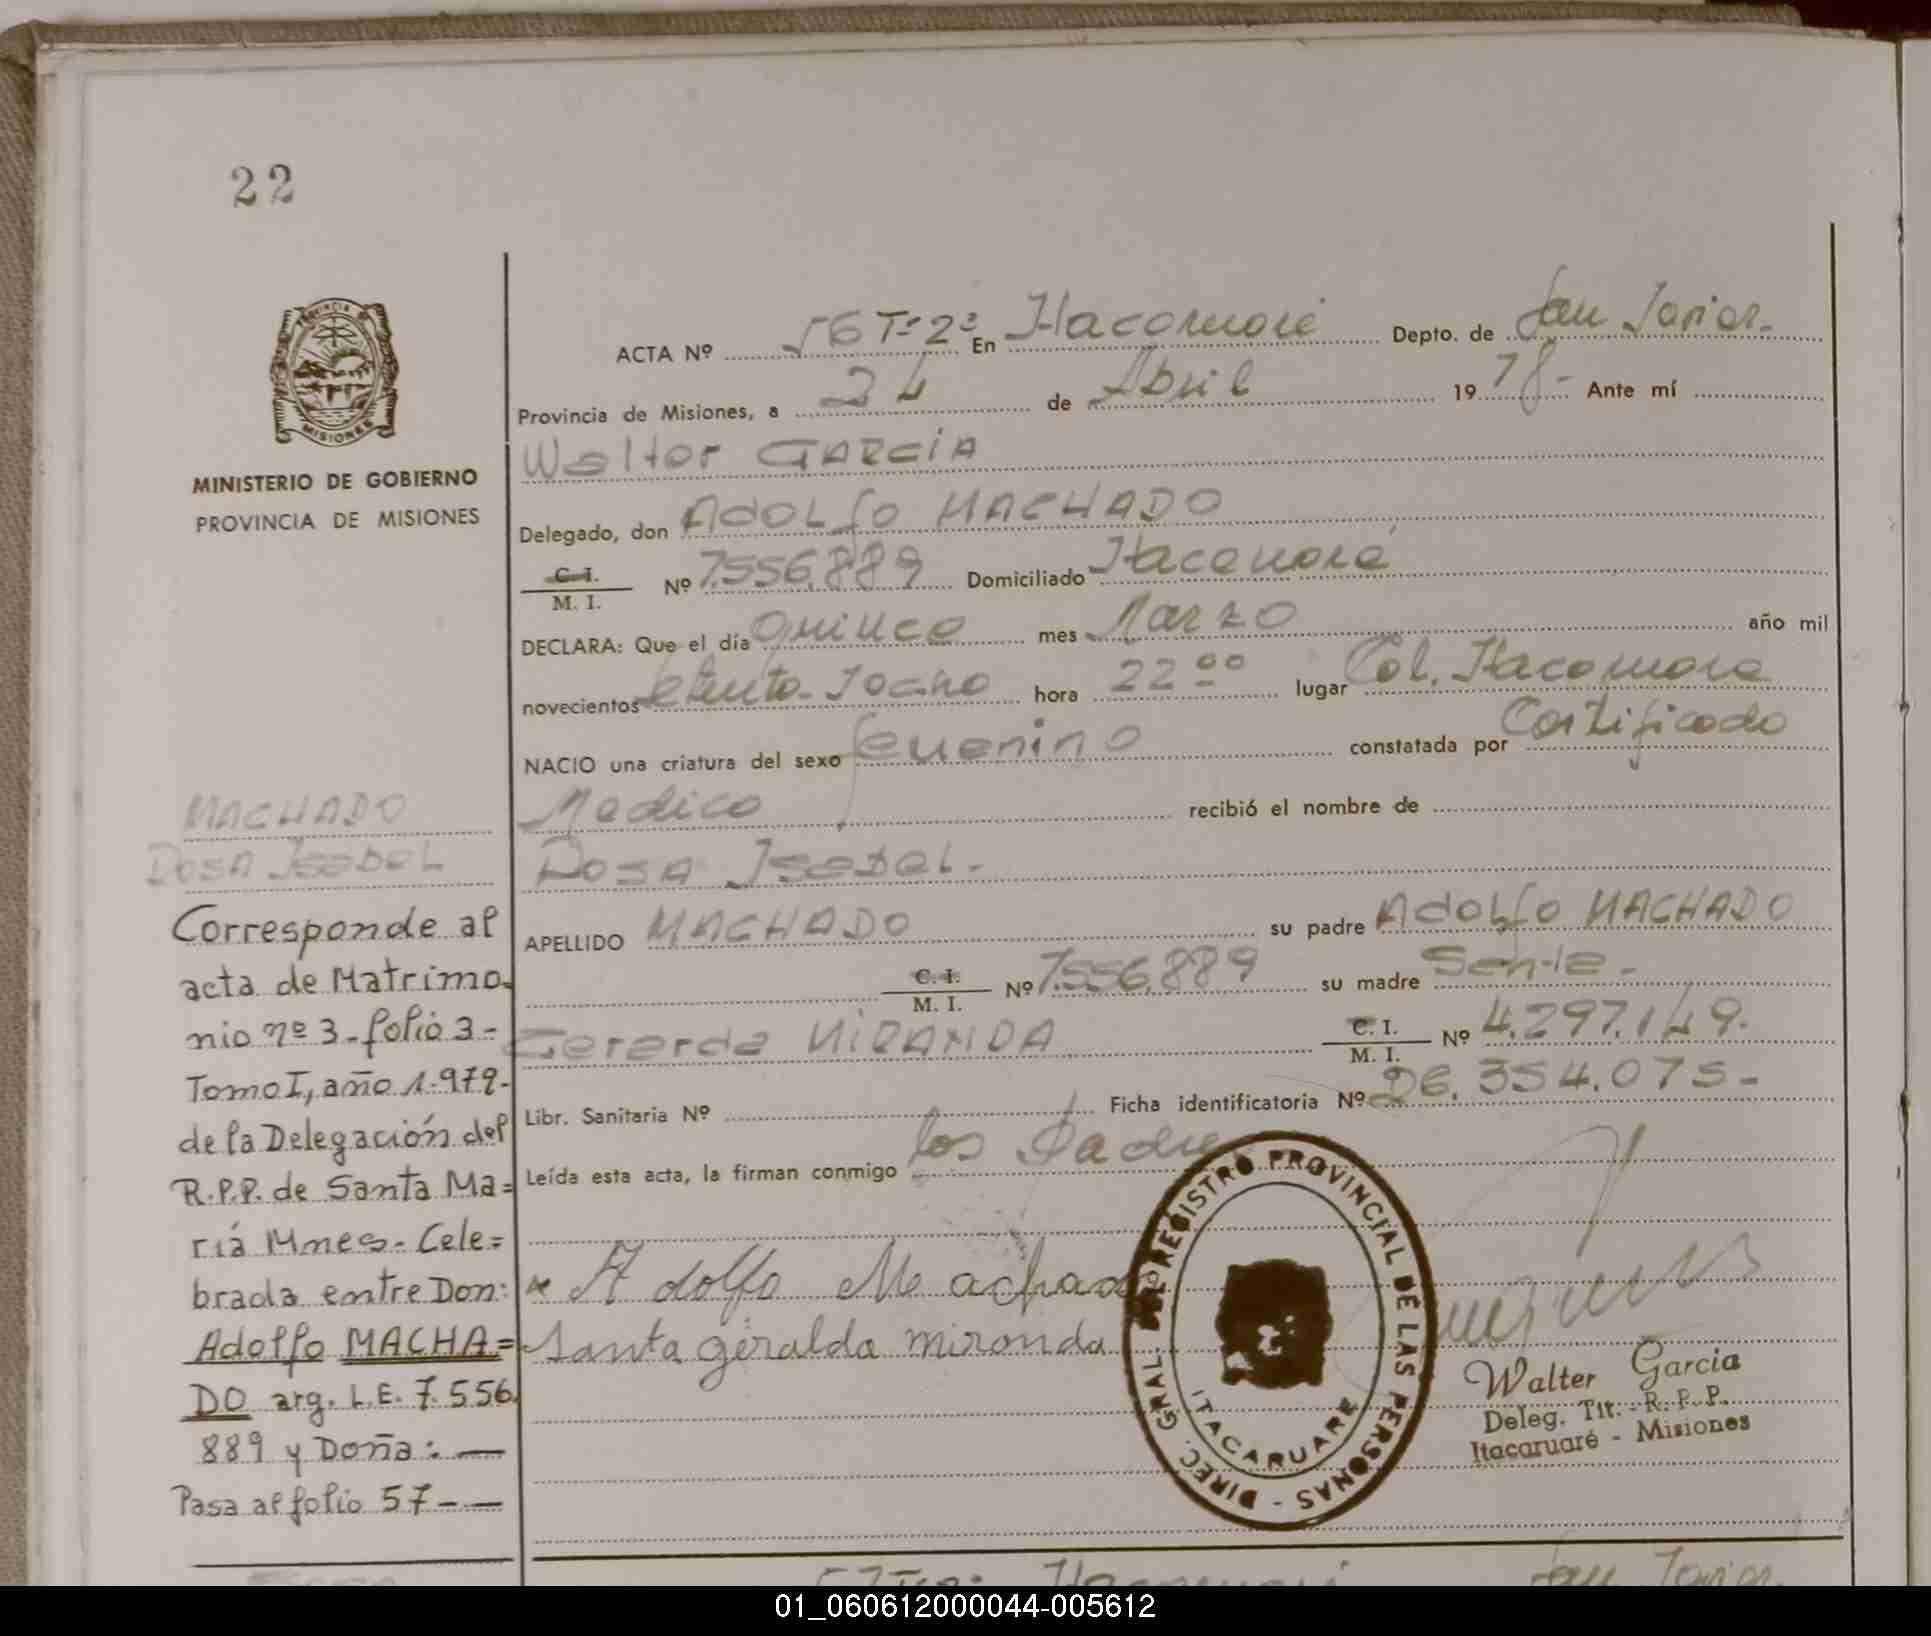 22
PROVINCIA DE
MISIONES
MINISTERIO DE GOBIERNO
PROVINCIA DE MISIONES
ACTA Nº 56 Tº 2º En Itacaruaré Depto. de San Javier
Provincia de Misiones, a 24 de Abril 1978- Ante mí
Walter GARCIA
Delegado, don Adolfo MACHADO
C. I.
M. I. Nº 7.556.889 Domiciliado Itacaruaré
DECLARA: Que el día quince mes Marzo año mil
novecientos setenta y ocho hora 22 ºº lugar Col. Itacaruaré
NACIO una criatura del sexo femenino constatada por Certificado
Medico recibió el nombre de
Rosa Isabel-
APELLIDO MACHADO su padre Adolfo MACHADO
C. I.
M. I. Nº 7.556.889 su madre Santa-
Gerarda MIRANDA C. I.
M. I. Nº 4.297.149.
Libr. Sanitaria Nº Ficha identificatoria Nº 26.354.075-
Leída esta acta, la firman conmigo los Padres
Adolfo Machado
Santa géralda miranda
MACHADO
Rosa Isabel
Corresponde al
acta de Matrimo-
nio nº 3-folio 3-
Tomo I, año 1.979-
de la Delegación del
R.P.P. de Santa Ma=
ría Mnes- Cele=
brada entre Don:
Adolfo MACHA=
DO arg. L.E. 7.556.
889 y Doña: —
Pasa al folio 57-—
DIREC. GRAL. DEL REGISTRO PROVINCIAL DE LAS PERSONAS -
ITACARUARE
Walter Garcia
Deleg. Tit. - R. P. P.
Itacaruaré - Misiones
57 Tº 2º Itacaruaré San Javier
01_060612000044-005612